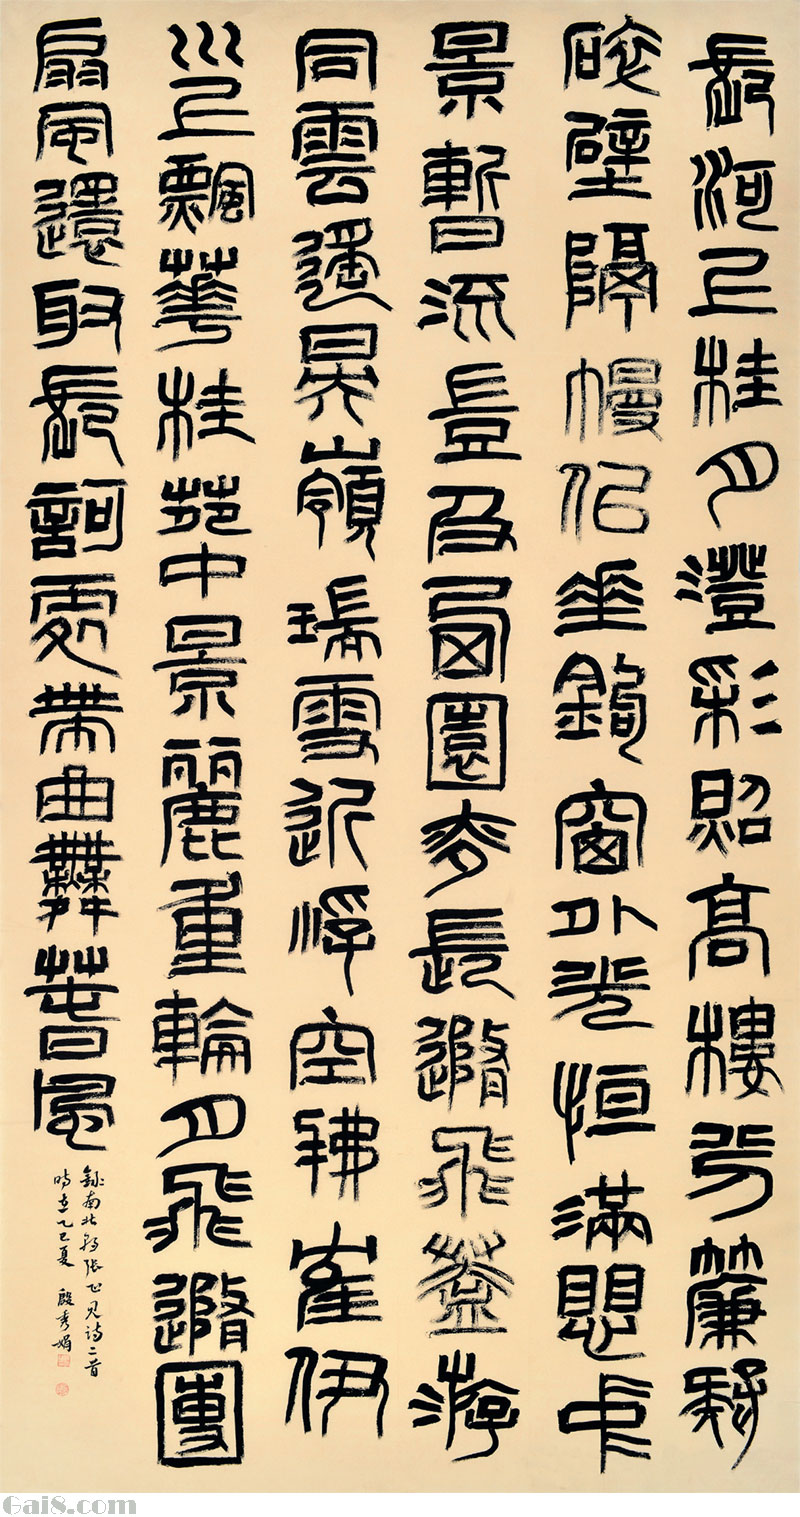 長河上桂月澄彩照高樓分簾疑
碎壁隔幔佀垂鉤窗外光恒滿帷中
景暫流豈及西園夜長隨飛蓋游
同雲遙映嶺瑞雪近浮空拂隺伊
川上飄華桂苑中景麗重輪月飛隨團
扇風還取長訶處帶曲舞春風
錄南北朝張正見詩二首
時在乙巳夏 殷秀娟
Gai8.com